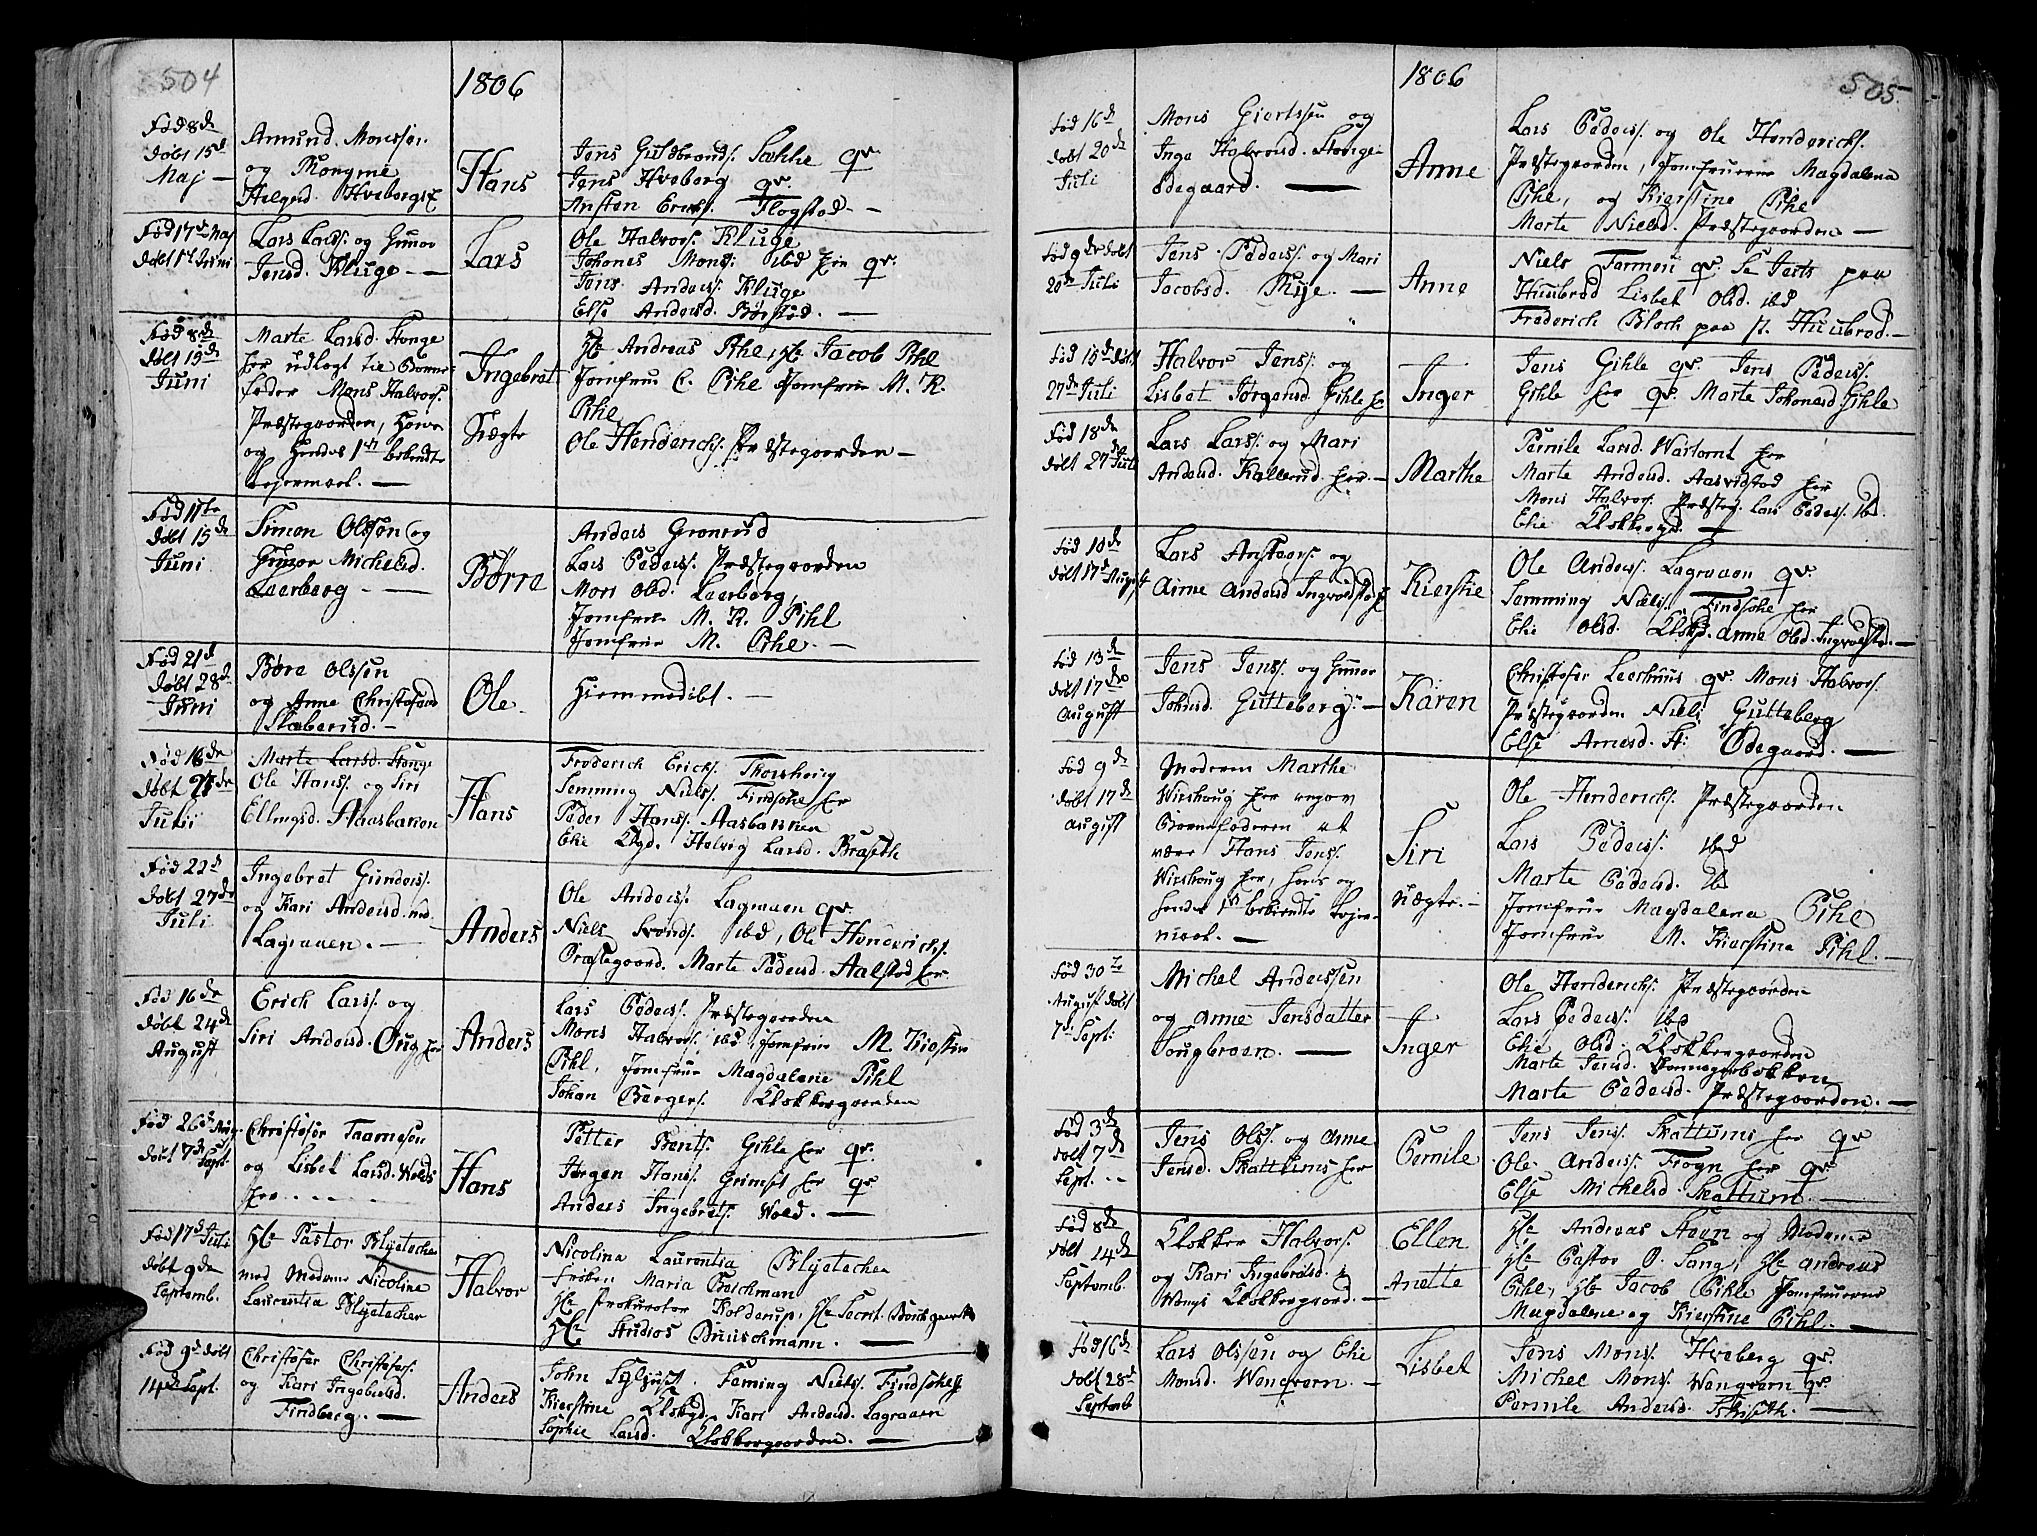 504
1806
Fød 8de
døbt 15de
Maj
Amund Monssøn
og
Helgesd. Hveberg
Hans
Jens Guldbrands. Sæhle qv.
Jens Hveberg qv.
Ansten Erics. Flogstad. —
Fød 17de Maj
døbt 1ste Juni
Lars Larss. og Gunor
Jensd. Kluge —
Lars
Ole Halvors. Kluge
Johanes Mons. ibd her qv.
Jens Anders. Kluge
Else Andersd. Børstad. —
Fød 8de
døbt 19de
Juni
Marte Larsd. Houge
her udlagt til Barne
fader Mons Halvors.
Præstegaarden, Hans
og Hendes 1ste bekendte
Lejermaal. —
Ingebret
Uægte
Hr. Andreas Pihl, Hr. Jacob Pihl
Jomfrue C. Pihl Jomfrue M. K.
Pihl
Ole Henderichs. Præstegaarden —
Fød 11te
døbt 15de
Juni
Simon Olssøn og
Gunor Michelsd.
Leerberg —
Børre
Anders Grønrud
Lars Peders. Præstegaarden
Mari Olsd. Leerberg,
Jomfrue M. K. Pihl
Jomfrue M. Pihl. —
Fød 21de
døbt 28de
Juni
Børe Olssen
og Anne Christofersd
Skaberud. —
Ole
Hiemmedøbt. —
Fød 18de
døbt 27de
Julii
Marte Larsd. Houge
Ole Hanss. og Siri
Ellingsd. Aasbakken
Hans
Frederich Erichs. Thorshoug
Semming Niels. Findsahl her
Peder Hans. Aasbakken
Elie Klgd. Helvig Larsd. Braseth
Fød 22de
døbt 27de
Juli
Ingebret Gunders.
og Kari Andersd. ned.
Lagraaen. —
Anders
Ole Anders. Lagraaen qv.
Niels Tronds. ibd, Ole Henderichs.
Præstegaard. Marte Pedersd. Aalstad her
Fød 16de
døbt 24de
August
Erich Larss. og
Siri Andersd. Oug her
Anders
Lars Peders. Præstegaarden
Mons Halvors. ibd, Jomfrue M Kirstin
Pihl, Jomfrue Magdalene Pihl
Johan Børgers. Klokkergaarden
Fød 26de Aug.
døbt 7de Sept.
Christofer Taamesøn
og Lisbet Larsd. Wolds
her
Hans
Petter Bents. Gihle her qv.
Jørgen Hans. Grimset her qv.
Anders Ingebrets. Wold. —
Fød 17de Juli
døbt 9de
Septemb.
Hr. Pastor Blyetacher
med Madame Nicoline
Laurentia Blyetacher
Halvor
Nicolina Laurentia Blyetacher
Frøken Maria Beichman
Hr. Prokurator Kolderup, Hr. Secret.
Hr. Studios Buuschmann. —
Fød 9de døbt
14de Sept.
Christofer Christofers.
og Kari Ingebretsd.
Findberg. —
Anders
John Semming Niels. Findsahl
Kierstine Klokgd. Kari Andersd. Lagraaen
Sophie Larsd. Klokkergaarden. —
505
1806
Fød 16de
døbt 20de
Juli
Mons Giertssen og
Inga Halvorsd. Houge-
ødegaard. —
Anne
Lars Peders. og Ole Henderichs.
Præstegaarden, Jomfruerne Magdalena
Pihl, og Kierstine Pihl
Marte Nielsd. Præstegaarden —
Fød 9de døbt
20de Juli
Jens Peders. og Mari
Jacobsd. Rye. —
Anne
Niels Tarmou qv. paa
Huubrød Lisbet Olsd. ibd
Frederich Bloch paa Huubrød. —
Fød 16de døbt
27de Juli
Halvor Jenss. og
Lisbet Jørgensd Gihle her
Inger
Jens Gihle qv. Jens Peders.
Gihle her qv. Marte Johansd Gihle
Fød 18de
døbt 27de Juli
Lars Larss. og Mari
Andersd. Kallerud her. —
Marthe
Pernile Larsd. Wartomt her
Marte Andersd. Aasvidstad her
Mons Halvors. Præsteg. Lars Peders. Ibd.
Elie Klokkergrd. —
Fød 10de
døbt 17de August
Lars Anstens. og
Anne Andersd Ingvoldstad
Kierstie
Ole Anders. Lagraaen qv.
Semming Niels. Findsahl her
Elie Olsd. Klokgd. Anne Olsd. Ingvoldstad. —
Fød 13de
døbt 17de
August
Jens Jenss. og Gunor
Johnsd. Gutteberg: —
Karen
Christofer Leerhuus qv. Mons Halvors.
Præstegaarden Niels Gutteberg
Else Arnesd. H: Ødegaard. —
Fød 9de
døbt 17de
August
Moderen Marthe
Wirshoug her angav
Barnefaderen at
være Hans Jenss.
Wirshoug her, hans og
hendes 1ste bekiendte Lejer-
maal. —
Siri
uægte. —
Ole Henderichs. Præstegaarden
Lars Peders. ibd
Marte Pedersd. Ib
Jomfrue Magdalena Pihl
Jomfrue M. Kierstina Pihl. —
Fød 30te
August døbt
7de Sept:
Michel Anderssen
og Anne Jensdatter
Tougbroen. —
Inger
Ole Henderichs. Præstegaarden
Lars Peders. ibd
Elie Olsd. Klokkergaarden
Marte Jensd.
Marte Pedersd. Præstegaarden. —
Fød 3de
døbt 7de
Sept.
Jens Olss. og Anne
Jensd. Skattums her
Pernile
Jens Jens. Skattums her qv
Ole Anders. Frogn her qv
Else Michelsd. Skattum. —
Fød 8de
døbt 14de
Septemb.
Klokker Halvors.
og Kari Ingebrigsd.
Klokkergaard. —
Ellen
Anette
Hr. Andreas Steen og Madame
Hr. Pastor O. Sang, Hr. Andreas
Pihl, Hr. Jacob Pihle Jomfruerne
Magdalene og Kierstine Pihl. —
Fød 16de
døbt 28de
Septemb
Lars Olssen og Elie
Monsd. Wangvarn. —
Lisbet
Jens Mons. Hveberg qv.
Michel Mons. Wangvarn qv.
Pernile Andersd. —